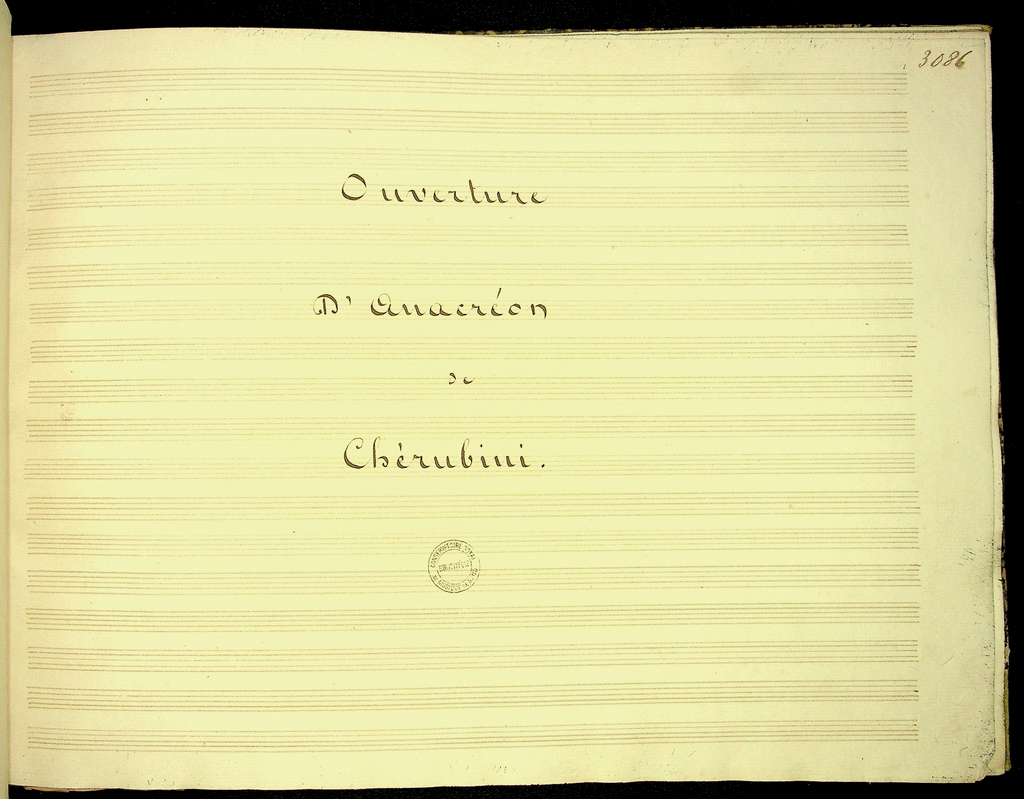 3086
Ouverture
D' Anacréon
de
Chérubini.
CONSERVATOIRE ROYAL
BIBLIOTHÈQUE